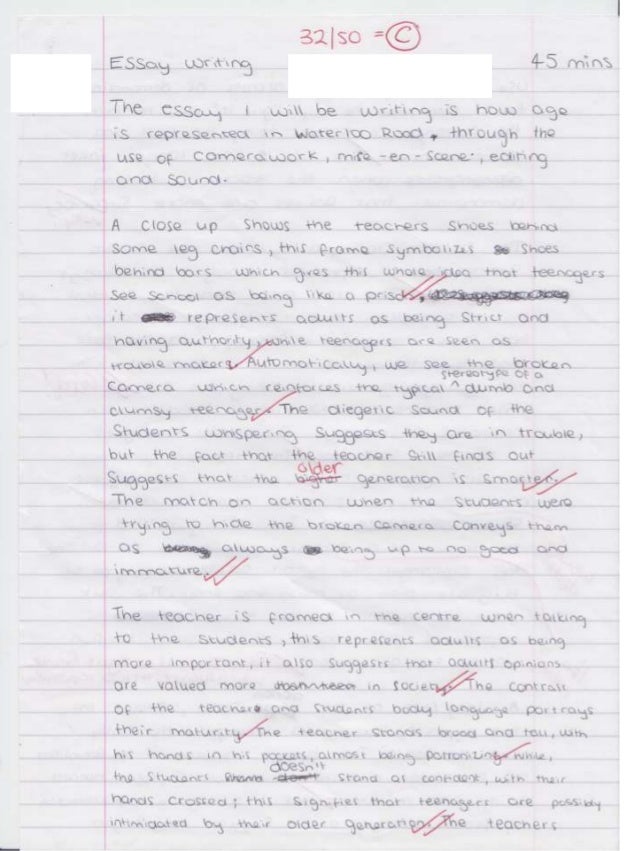 32/50 = C
Essay writing
45 mins
The essay I will be writing is how age
is represented in Waterloo Road, through the
use of camerawork, mise-en-scene, editing
and sound.
A close up shows the teachers shoes behind
some leg chairs, this frame symbolizes shoes
behind bars which gives this whole idea that teenagers
see school as being like a prison,
it represents adults as being strict and
having authority, while teenagers are seen as
trouble makers. Automatically, we see the broken
stereotype of a
camera which reinforces the typical ^ dumb and
clumsy teenager. The diegetic sound of the
students whispering suggests they are in trouble,
but the fact that the teacher still finds out
older
suggests that the higher generation is smarter.
The match on action when the students were
trying to hide the broken camera conveys them
as always being up to no good and
immature.
The teacher is framed in the centre when talking
to the students, this represents adults as being
more important, it also suggests that adults opinions
are valued more in society. The contrast
of the teachers and students body language portrays
their maturity. The teacher stands broad and tall, with
his hands in his pockets, almost being patronizing while,
doesn't
the students don't stand as confident, with their
hands crossed; this signifies that teenagers are possibly
intimidated by their older generation. The teachers